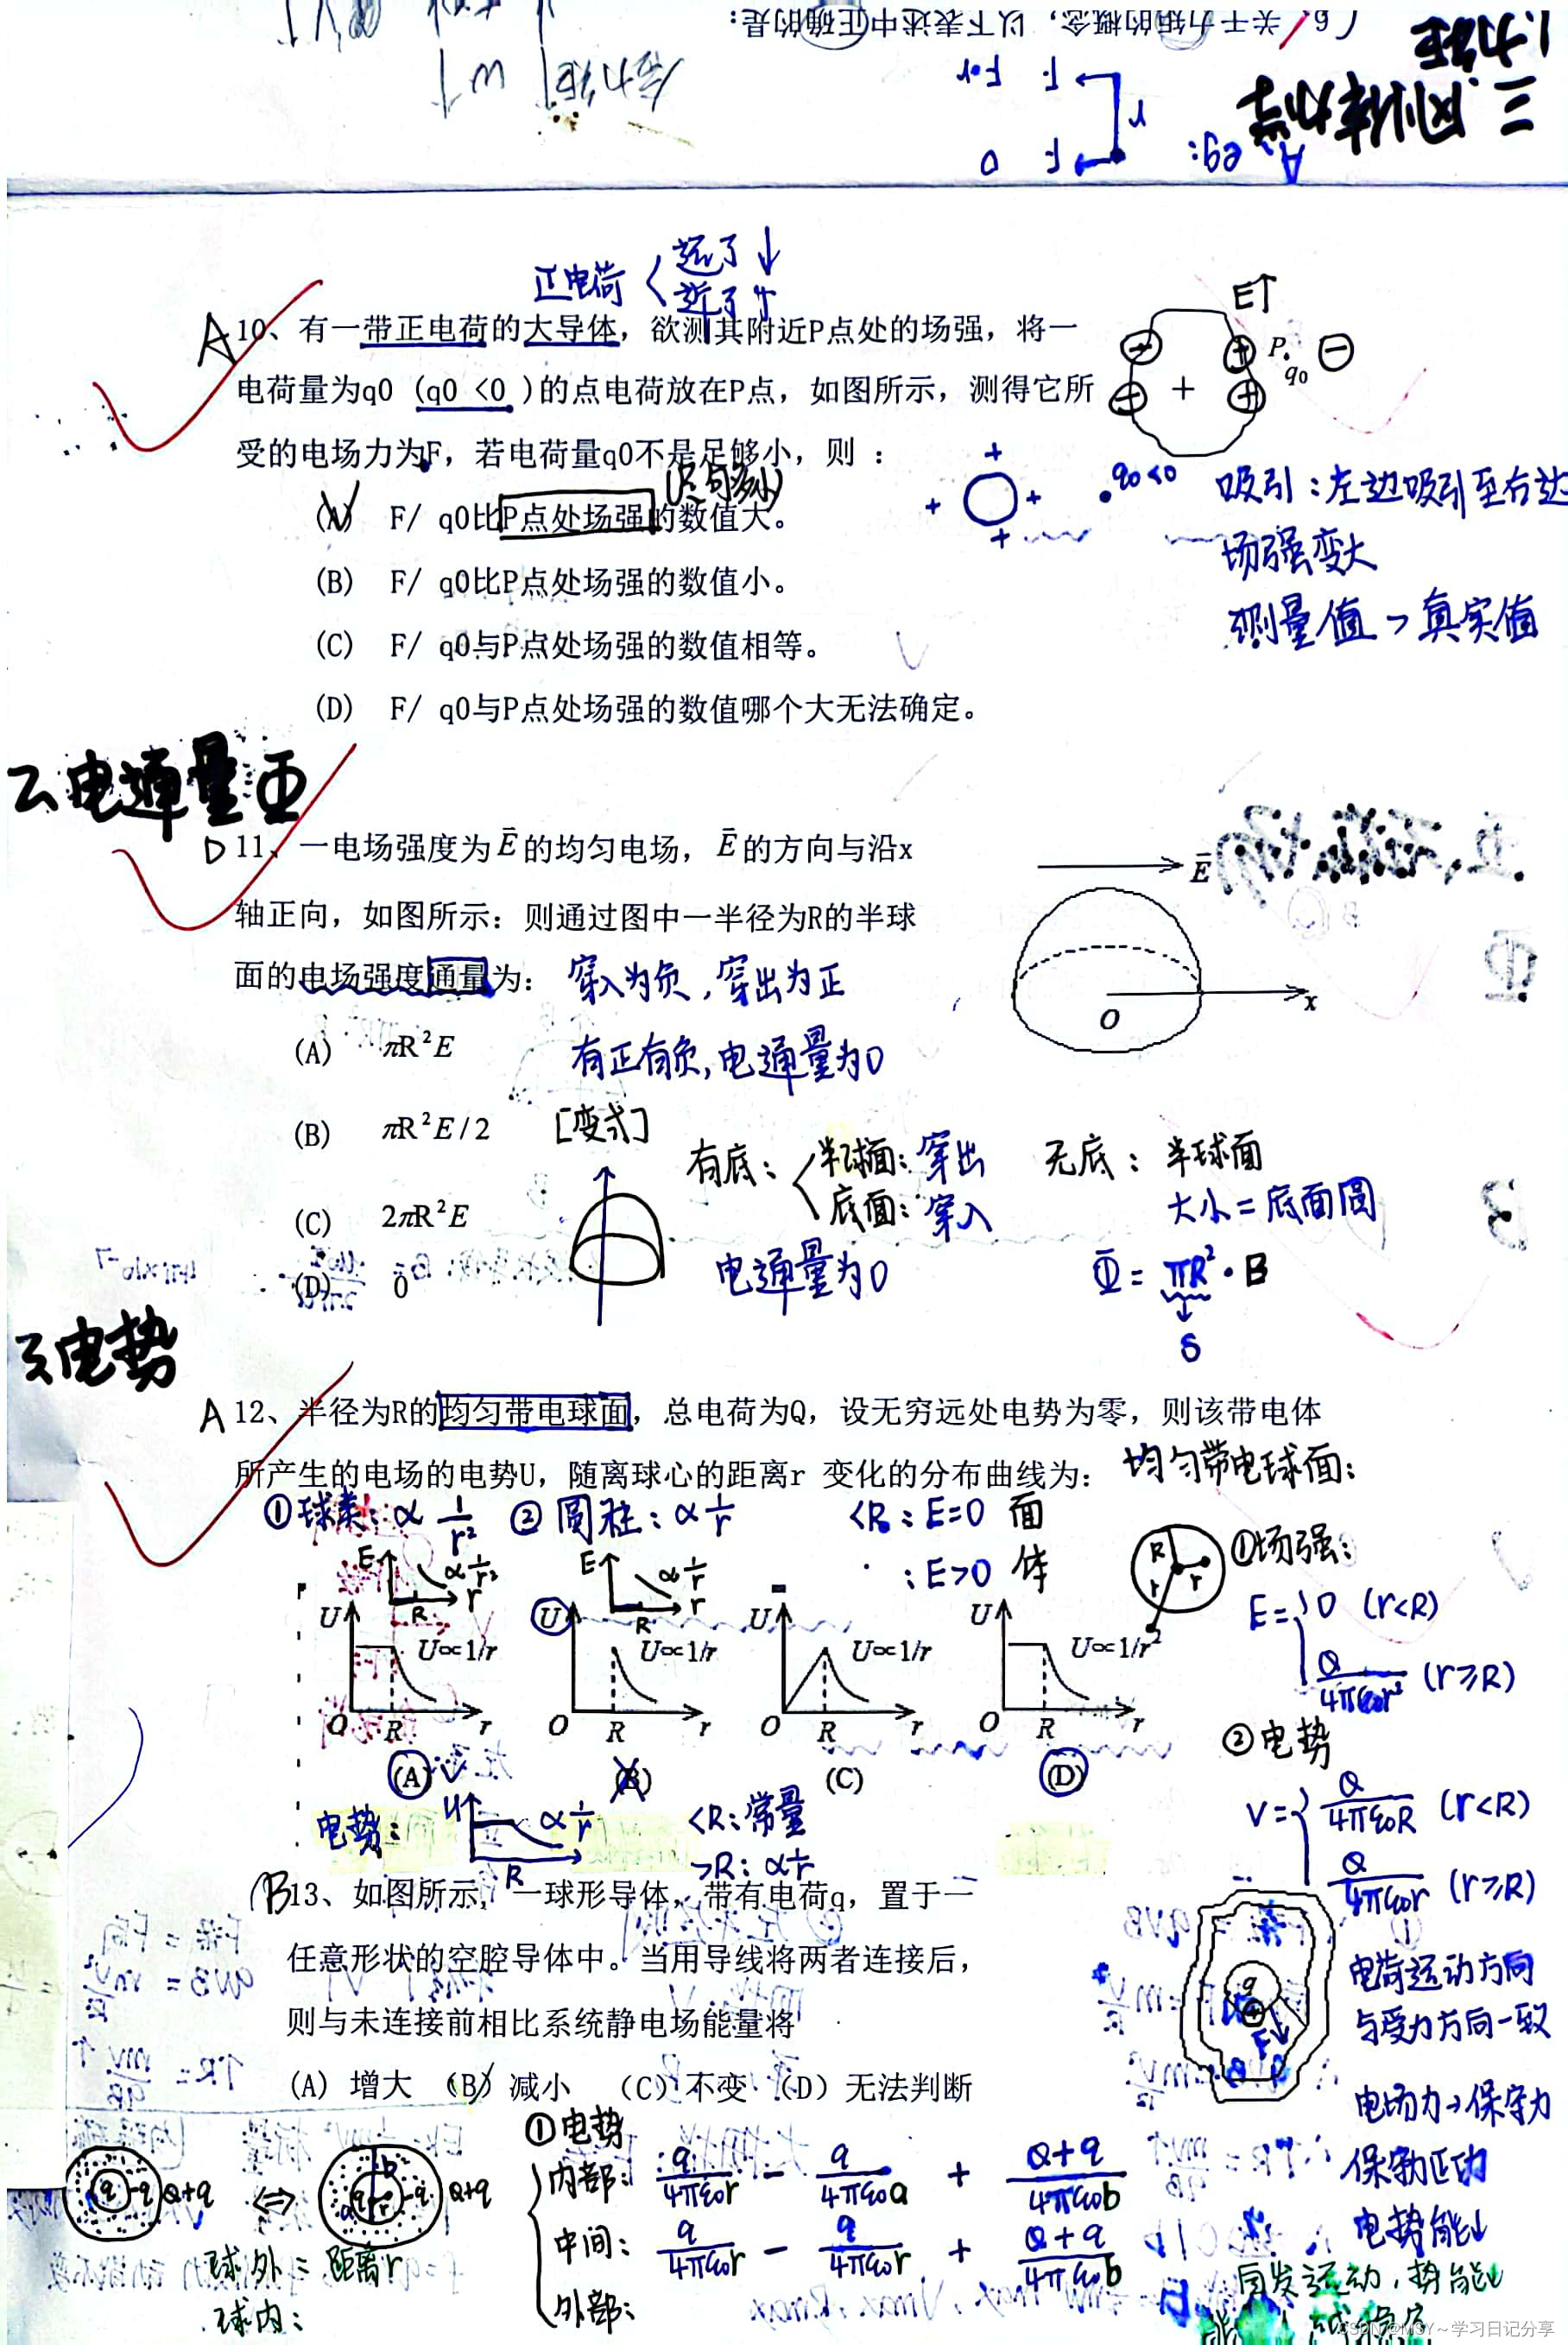 三.刚体力学
1.力矩
(9、关于力矩的概念，以下表述中正确的是：
A eg:
F F·r
F 0
r
合力矩 M
正电荷 远了↓
近了↑
A 10、有一带正电荷的大导体，欲测其附近P点处的场强，将一
电荷量为q0 (q0 <0 )的点电荷放在P点，如图所示，测得它所
受的电场力为F，若电荷量q0不是足够小，则 ：
(A) F/ q0比P点处场强的数值大。
(足够小)
(B) F/ q0比P点处场强的数值小。
(C) F/ q0与P点处场强的数值相等。
(D) F/ q0与P点处场强的数值哪个大无法确定。
E↑
P
q0
+
q0<0
吸引：左边吸引至右边
场强变大
测量值 > 真实值
2.电通量Φ
D 11、一电场强度为Ē的均匀电场，Ē的方向与沿x
轴正向，如图所示：则通过图中一半径为R的半球
面的电场强度通量为：
穿入为负，穿出为正
有正有负，电通量为0
(A) πR²E
(B) πR²E/2
(C) 2πR²E
(D) 0
Ē
O x
[变式]
有底：半球面：穿出
底面：穿入
电通量为0
无底：半球面
大小=底面圆
Φ = πR²·B
S
3.电势
A 12、半径为R的均匀带电球面，总电荷为Q，设无穷远处电势为零，则该带电体
所产生的电场的电势U，随离球心的距离r 变化的分布曲线为：
均匀带电球面：
①球类：∝ 1/r²
②圆柱：∝ 1/r
<R：E=0 面
：E>0 体
E ∝1/r² R r
E ∝1/r R r
U U∝1/r O R r
U U∝1/r O R r
U U∝1/r O R r
U U∝1/r² O R r
(A) (B) (C) (D)
R r r
①场强：
E= 0 (r<R)
Q/4πε0r² (r≥R)
②电势
V= Q/4πε0R (r<R)
Q/4πε0r (r≥R)
电势：
U ∝1/r R
<R：常量
>R：∝1/r
B 13、如图所示，一球形导体，带有电荷q，置于一
任意形状的空腔导体中。当用导线将两者连接后，
则与未连接前相比系统静电场能量将
(A) 增大 (B) 减小 (C) 不变 (D) 无法判断
q
电荷运动方向
与受力方向一致
电场力→保守力
保守力正功
电势能↓
自发运动，势能↓
q -q Q+q
⇔
a b q r -q Q+q
球外=距离r
球内：
①电势
内部：q/4πε0r - q/4πε0a + Q+q/4πε0b
中间：q/4πε0r - q/4πε0r + Q+q/4πε0b
外部：
CSDN @MSY～学习日记分享